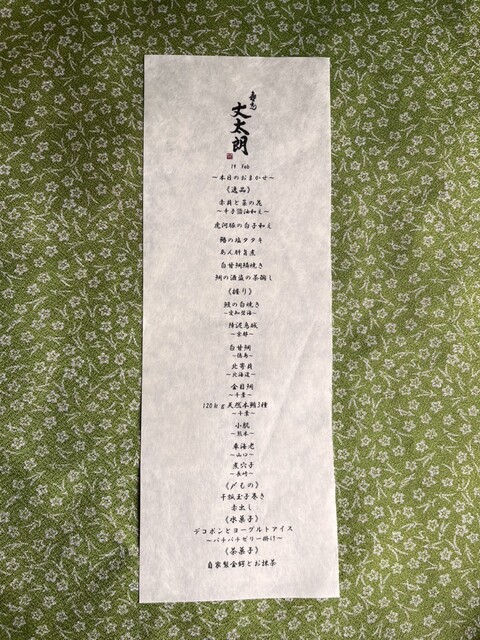 寿志
丈太朗
19 Feb
〜本日のおまかせ〜
《逸品》
赤貝と菜の花
〜辛子醤油和え〜
虎河豚の白子和え
鰆の塩タタキ
あん肝旨煮
白甘鯛鱗焼き
鯛の酒盗の茶碗し
《握り》
鰻の白焼き
〜愛知碧海〜
〜京都〜
白甘鯛
〜徳島〜
北寄貝
〜北海道〜
金目鯛
〜千葉〜
120kg天然本鮪3種
〜千葉〜
小肌
〜熊本〜
車海老
〜山口〜
煮穴子
〜長崎〜
《〆もの》
干瓢玉子巻き
赤出し
《水菓子》
デコポンとヨーグルトアイス
〜パチパチゼリー掛け〜
《茶菓子》
自家製金鍔とお抹茶